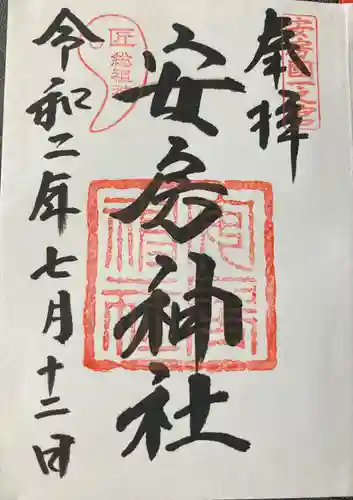 奉拝
安房國一之宮
安房神社
安房神社
匠総祖神
令和二年七月十二日